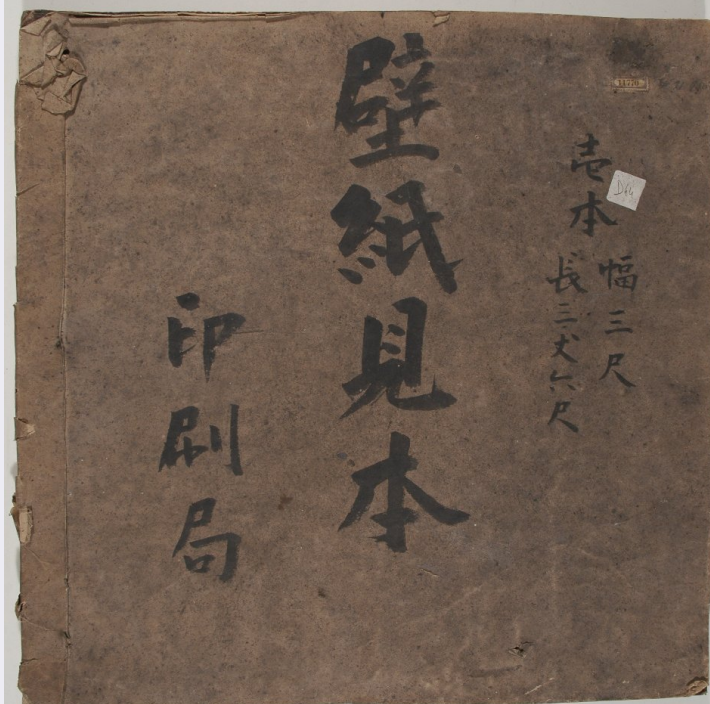 壱本
幅三尺
長三丈六尺
壁紙見本
印刷局